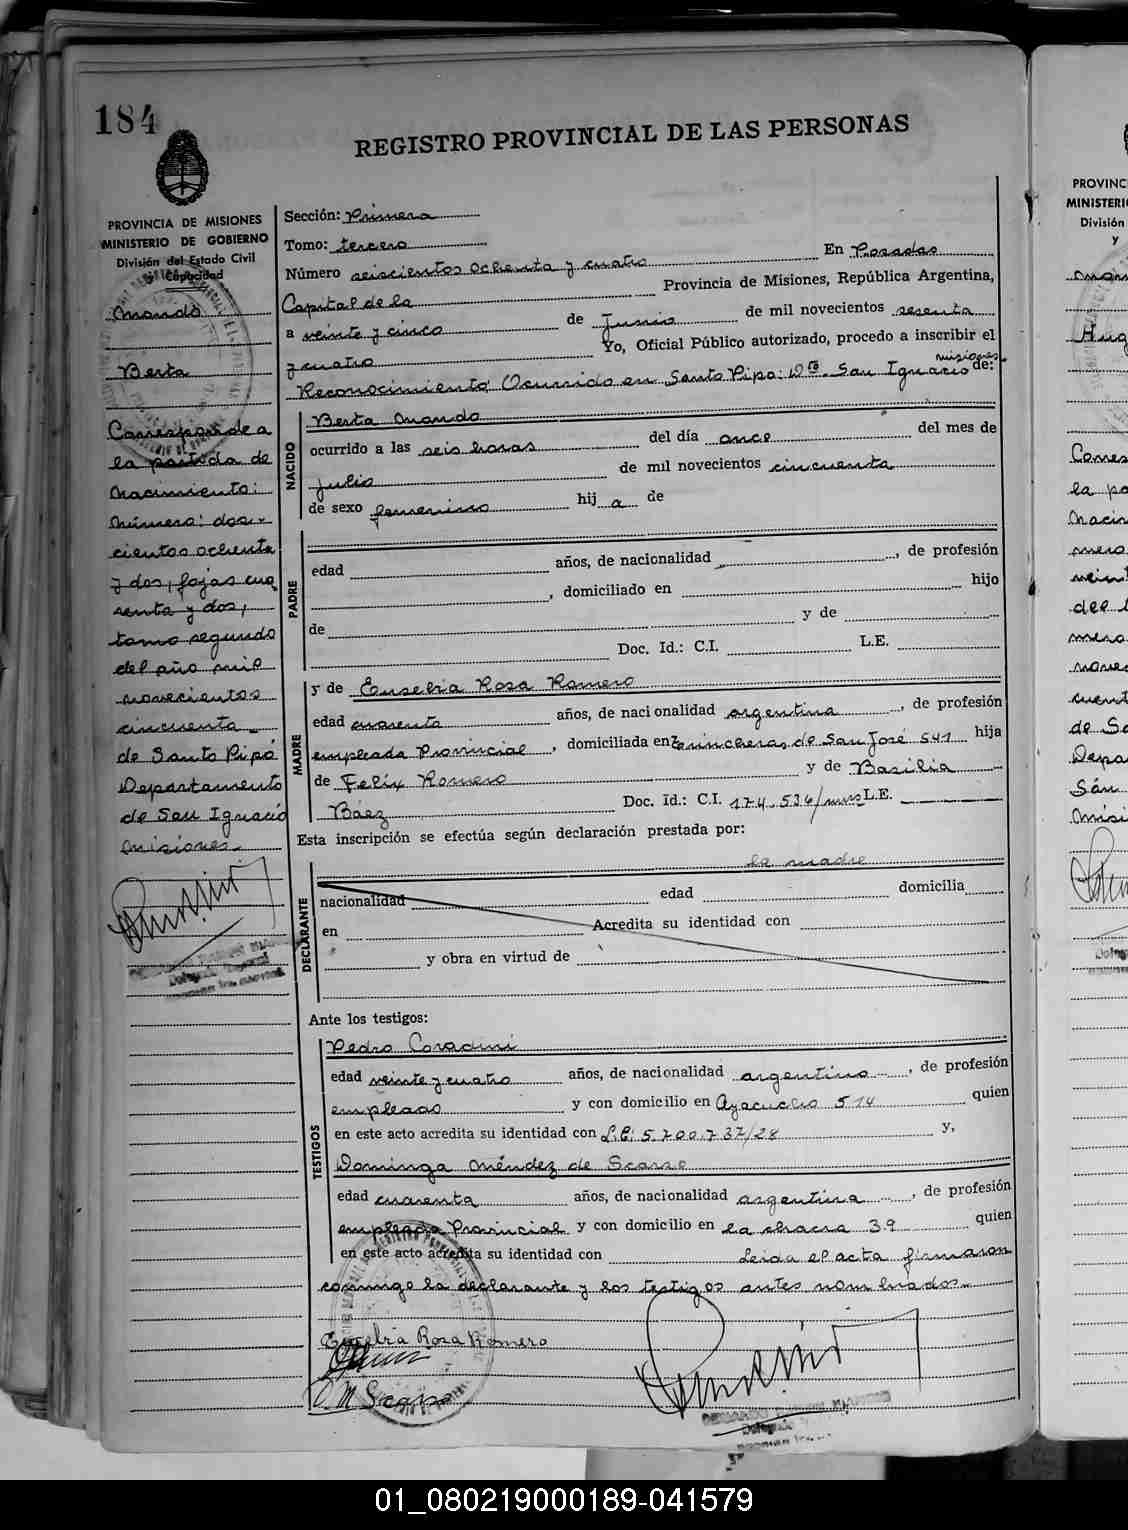 184
REGISTRO PROVINCIAL DE LAS PERSONAS
PROVINCIA DE MISIONES
MINISTERIO DE GOBIERNO
División del Estado Civil
y Capacidad
Berta
Corresponde a
la partida de
nacimiento:
número: dos-
cientos ochenta
y dos, fojas cua
renta y dos,
tomo segundo
del año mil
novecientos
cincuenta
de Santo Pipó
Departamento
de San Ignacio
Misiones.
Sección: Primera
Tomo: tercero
Número seiscientos ochenta y cuatro En Posadas
Capital de la Provincia de Misiones, República Argentina,
a veinte y cinco de Junio de mil novecientos sesenta
y cuatro Yo, Oficial Público autorizado, procedo a inscribir el
misiones
Reconocimiento Ocurrido en Santo Pipo: Dto. San Ignacio de:
NACIDO
Berta
ocurrido a las seis horas del día once del mes de
Julio de mil novecientos cincuenta
de sexo femenino hij a de
PADRE
edad años, de nacionalidad , de profesión
, domiciliado en hijo
de y de
Doc. Id.: C.I. L.E.
MADRE
y de Eusebia Rosa Romero
edad cuarenta años, de nacionalidad argentina , de profesión
empleada Provincial , domiciliada en Trincheras de San José 541 hija
de Felix Romero y de Basilia
Báez Doc. Id.: C.I. 174.536/mnes L.E.
Esta inscripción se efectúa según declaración prestada por:
la madre
DECLARANTE
nacionalidad edad domicilia
en Acredita su identidad con
y obra en virtud de
Ante los testigos:
TESTIGOS
Pedro Coradini
edad veinte y cuatro años, de nacionalidad argentino , de profesión
empleado y con domicilio en Ayacucho 514 quien
en este acto acredita su identidad con L.E: 5.700.737/28 y,
Dominga Méndez de Scarso
edad cuarenta años, de nacionalidad argentina , de profesión
empleada Provincial y con domicilio en la chacra 39 quien
en este acto acredita su identidad con Leida el acta firmaron
conmigo la declarante y los testigos antes nombrados.
Eusebia Rosa Romero
D. M Scarso
PROVINC
MINISTERI
División
y
01_080219000189-041579